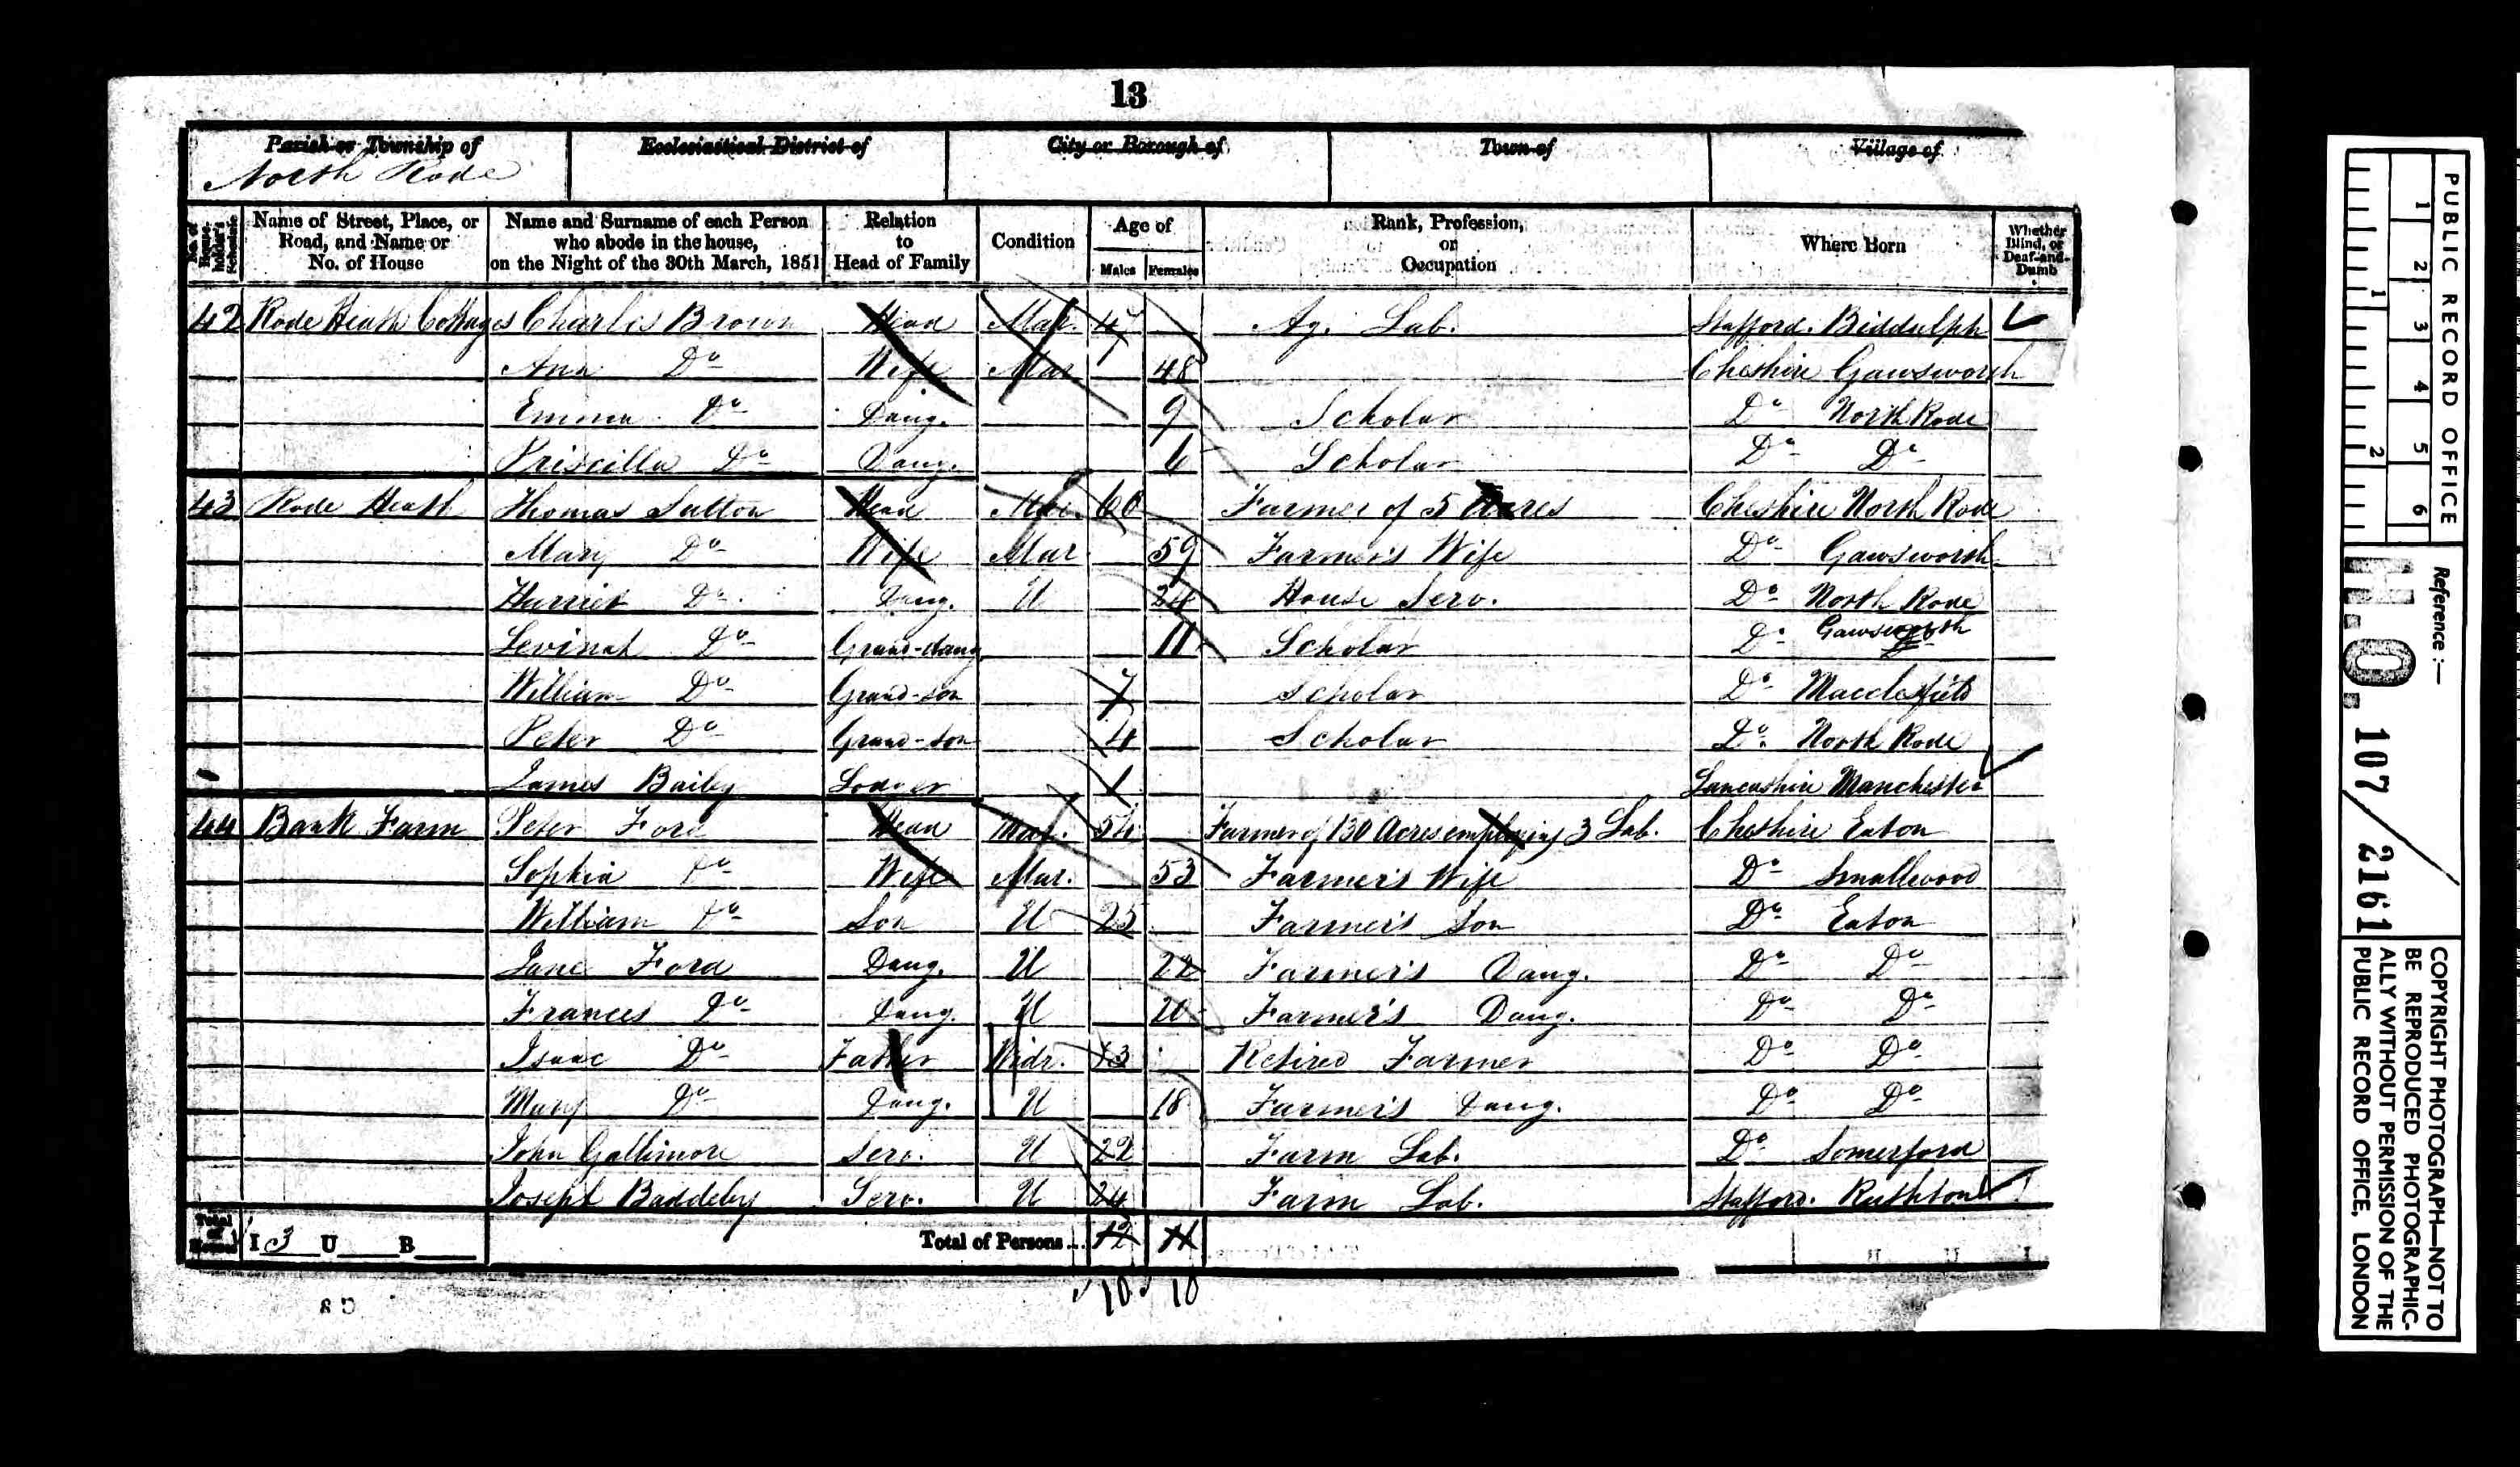 13
Parish or Township of Ecclesiastical District of City or Borough of Town of Village of
North Rode
No. of House-holder's Schedule Name of Street, Place, or Road, and Name or No. of House Name and Surname of each Person who abode in the house, on the Night of the 30th March, 1851 Relation to Head of Family Condition Age of Males Females Rank, Profession, or Occupation Where Born Whether Blind, or Deaf-and-Dumb
42 Rode Heath Cottages Charles Brown Head Mar. 47 Ag. Lab. Stafford. Biddulph
Ann Do Wife Mar 48 Cheshire Gawsworth
Emma Do Daug. 9 Scholar Do North Rode
Priscilla Do Daug. 6 Scholar Do Do
43 Rode Heath Thomas Sutton Head Mar. 60 Farmer of 5 Acres Cheshire North Rode
Mary Do Wife Mar 59 Farmer's Wife Do Gawsworth
Harriet Do Daug. U 24 House Serv. Do North Rode
Levinah Do Grand-daug 11 Scholar Do Gawsworth
William Do Grand-son 7 Scholar Do Macclesfield
Peter Do Grand-son 4 Scholar Do North Rode
James Bailey Lodger 1 Lancashire Manchester
44 Bank Farm Peter Ford Head Mar. 54 Farmer of 130 Acres employing 3 Lab. Cheshire Eaton
Sophia Do Wife Mar. 53 Farmer's Wife Do Smallwood
William Do Son U 25 Farmer's Son Do Eaton
Jane Ford Daug. U 22 Farmer's Daug. Do Do
Frances Do Daug. U 20 Farmer's Daug. Do Do
Isaac Do Father Widr. Retired Farmer Do Do
Mary Do Daug. U 18 Farmer's Daug. Do Do
John Gallimore Serv. U 22 Farm Lab. Do Somerford
Joseph Baddeley Serv. U 24 Farm Lab. Stafford. Rushton
Total of Houses I 3 U B Total of Persons... 12 11
10 10
PUBLIC RECORD OFFICE
1 2 3 4 5 6
1 2
Reference:—
H.O. 107/2161
COPYRIGHT PHOTOGRAPH—NOT TO
BE REPRODUCED PHOTOGRAPHIC-
ALLY WITHOUT PERMISSION OF THE
PUBLIC RECORD OFFICE, LONDON